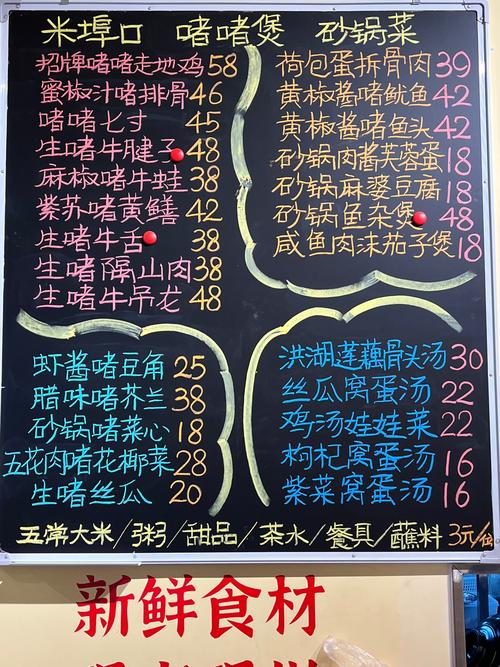 米埠口 啫啫煲 砂锅菜
招牌啫啫走地鸡58
蜜椒汁啫排骨46
啫啫七寸 45
生啫牛腱子48
麻椒啫牛蛙38
紫苏啫黄鳝42
生啫牛舌 38
生啫隔山肉38
生啫牛吊龙48
荷包蛋拆骨肉39
黄椒酱啫鱿鱼42
黄椒酱啫鱼头42
砂锅肉酱芙蓉蛋18
砂锅麻婆豆腐18
砂锅鱼杂煲48
咸鱼肉沫茄子煲18
虾酱啫豆角25
腊味啫芥兰38
砂锅啫菜心18
五花肉啫花椰菜28
生啫丝瓜20
洪湖莲藕骨头汤30
丝瓜窝蛋汤22
鸡汤娃娃菜22
枸杞窝蛋汤16
紫菜窝蛋汤16
五常大米/粥/甜品/茶水/餐具/蘸料3元/位
新鲜食材